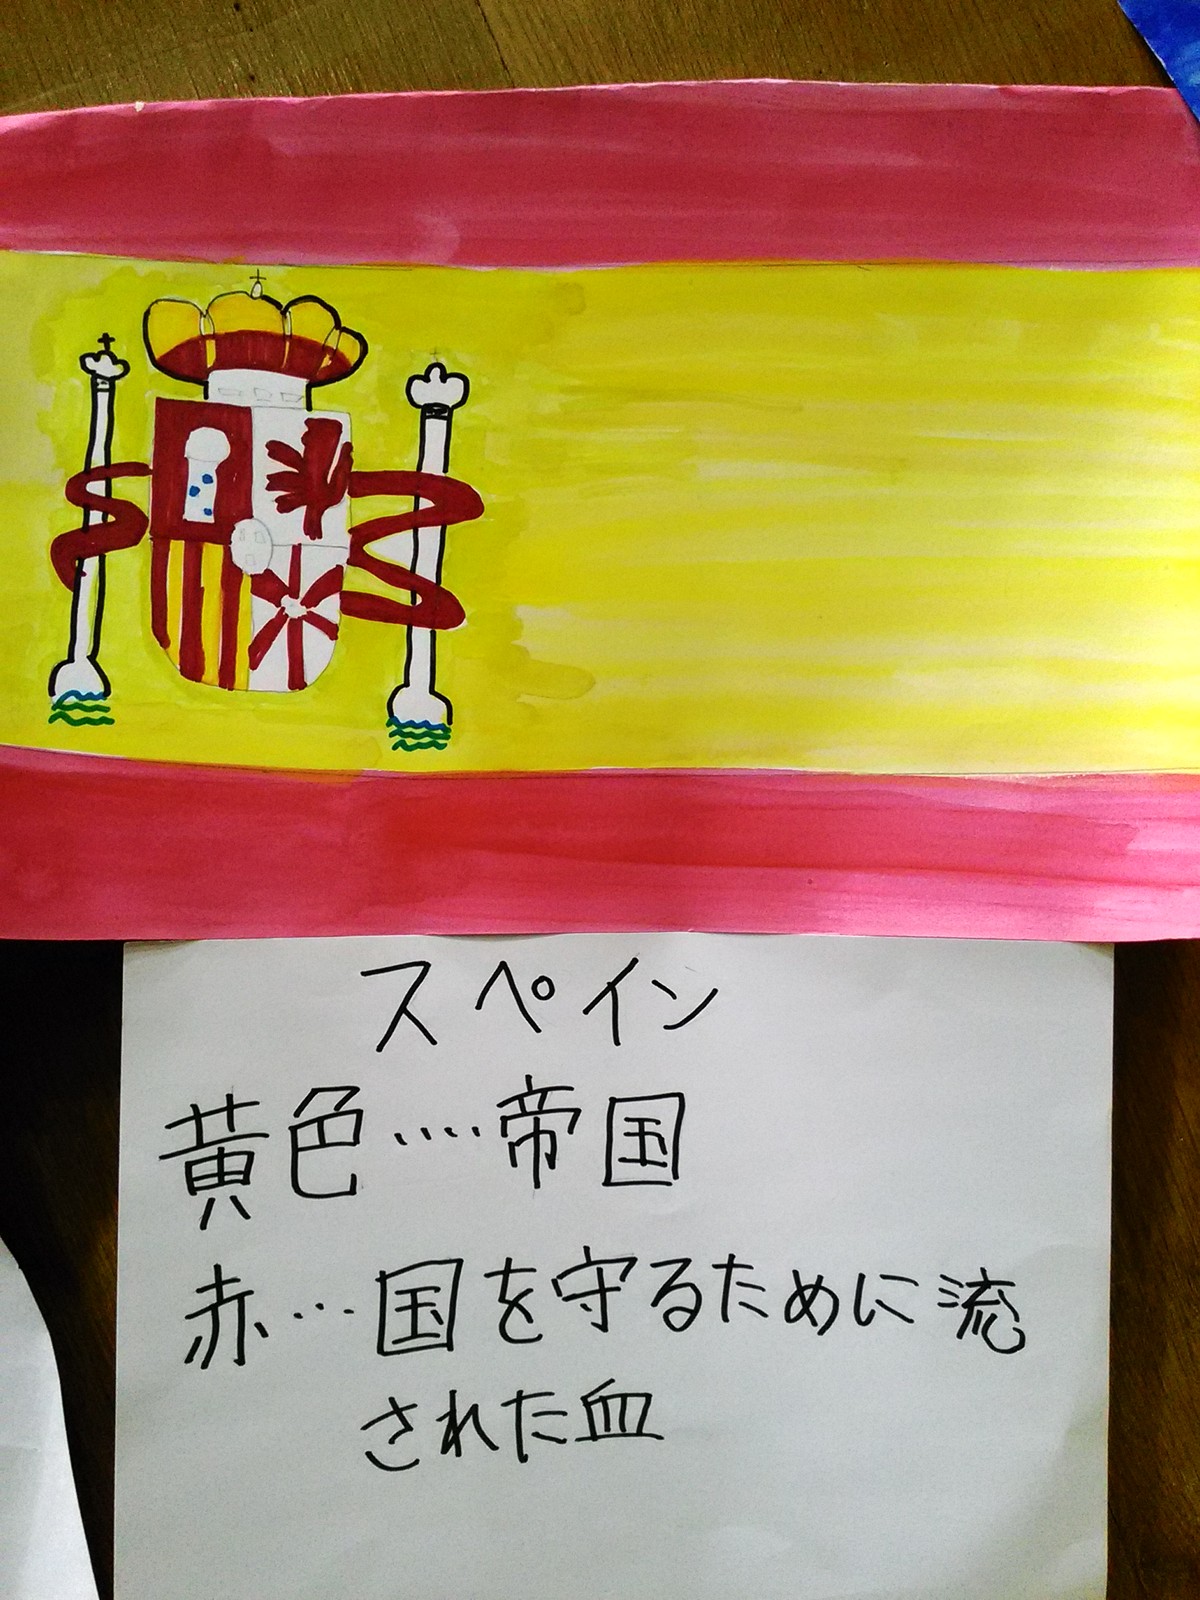 スペイン
黄色‥‥帝国
赤…国を守るために流
された血